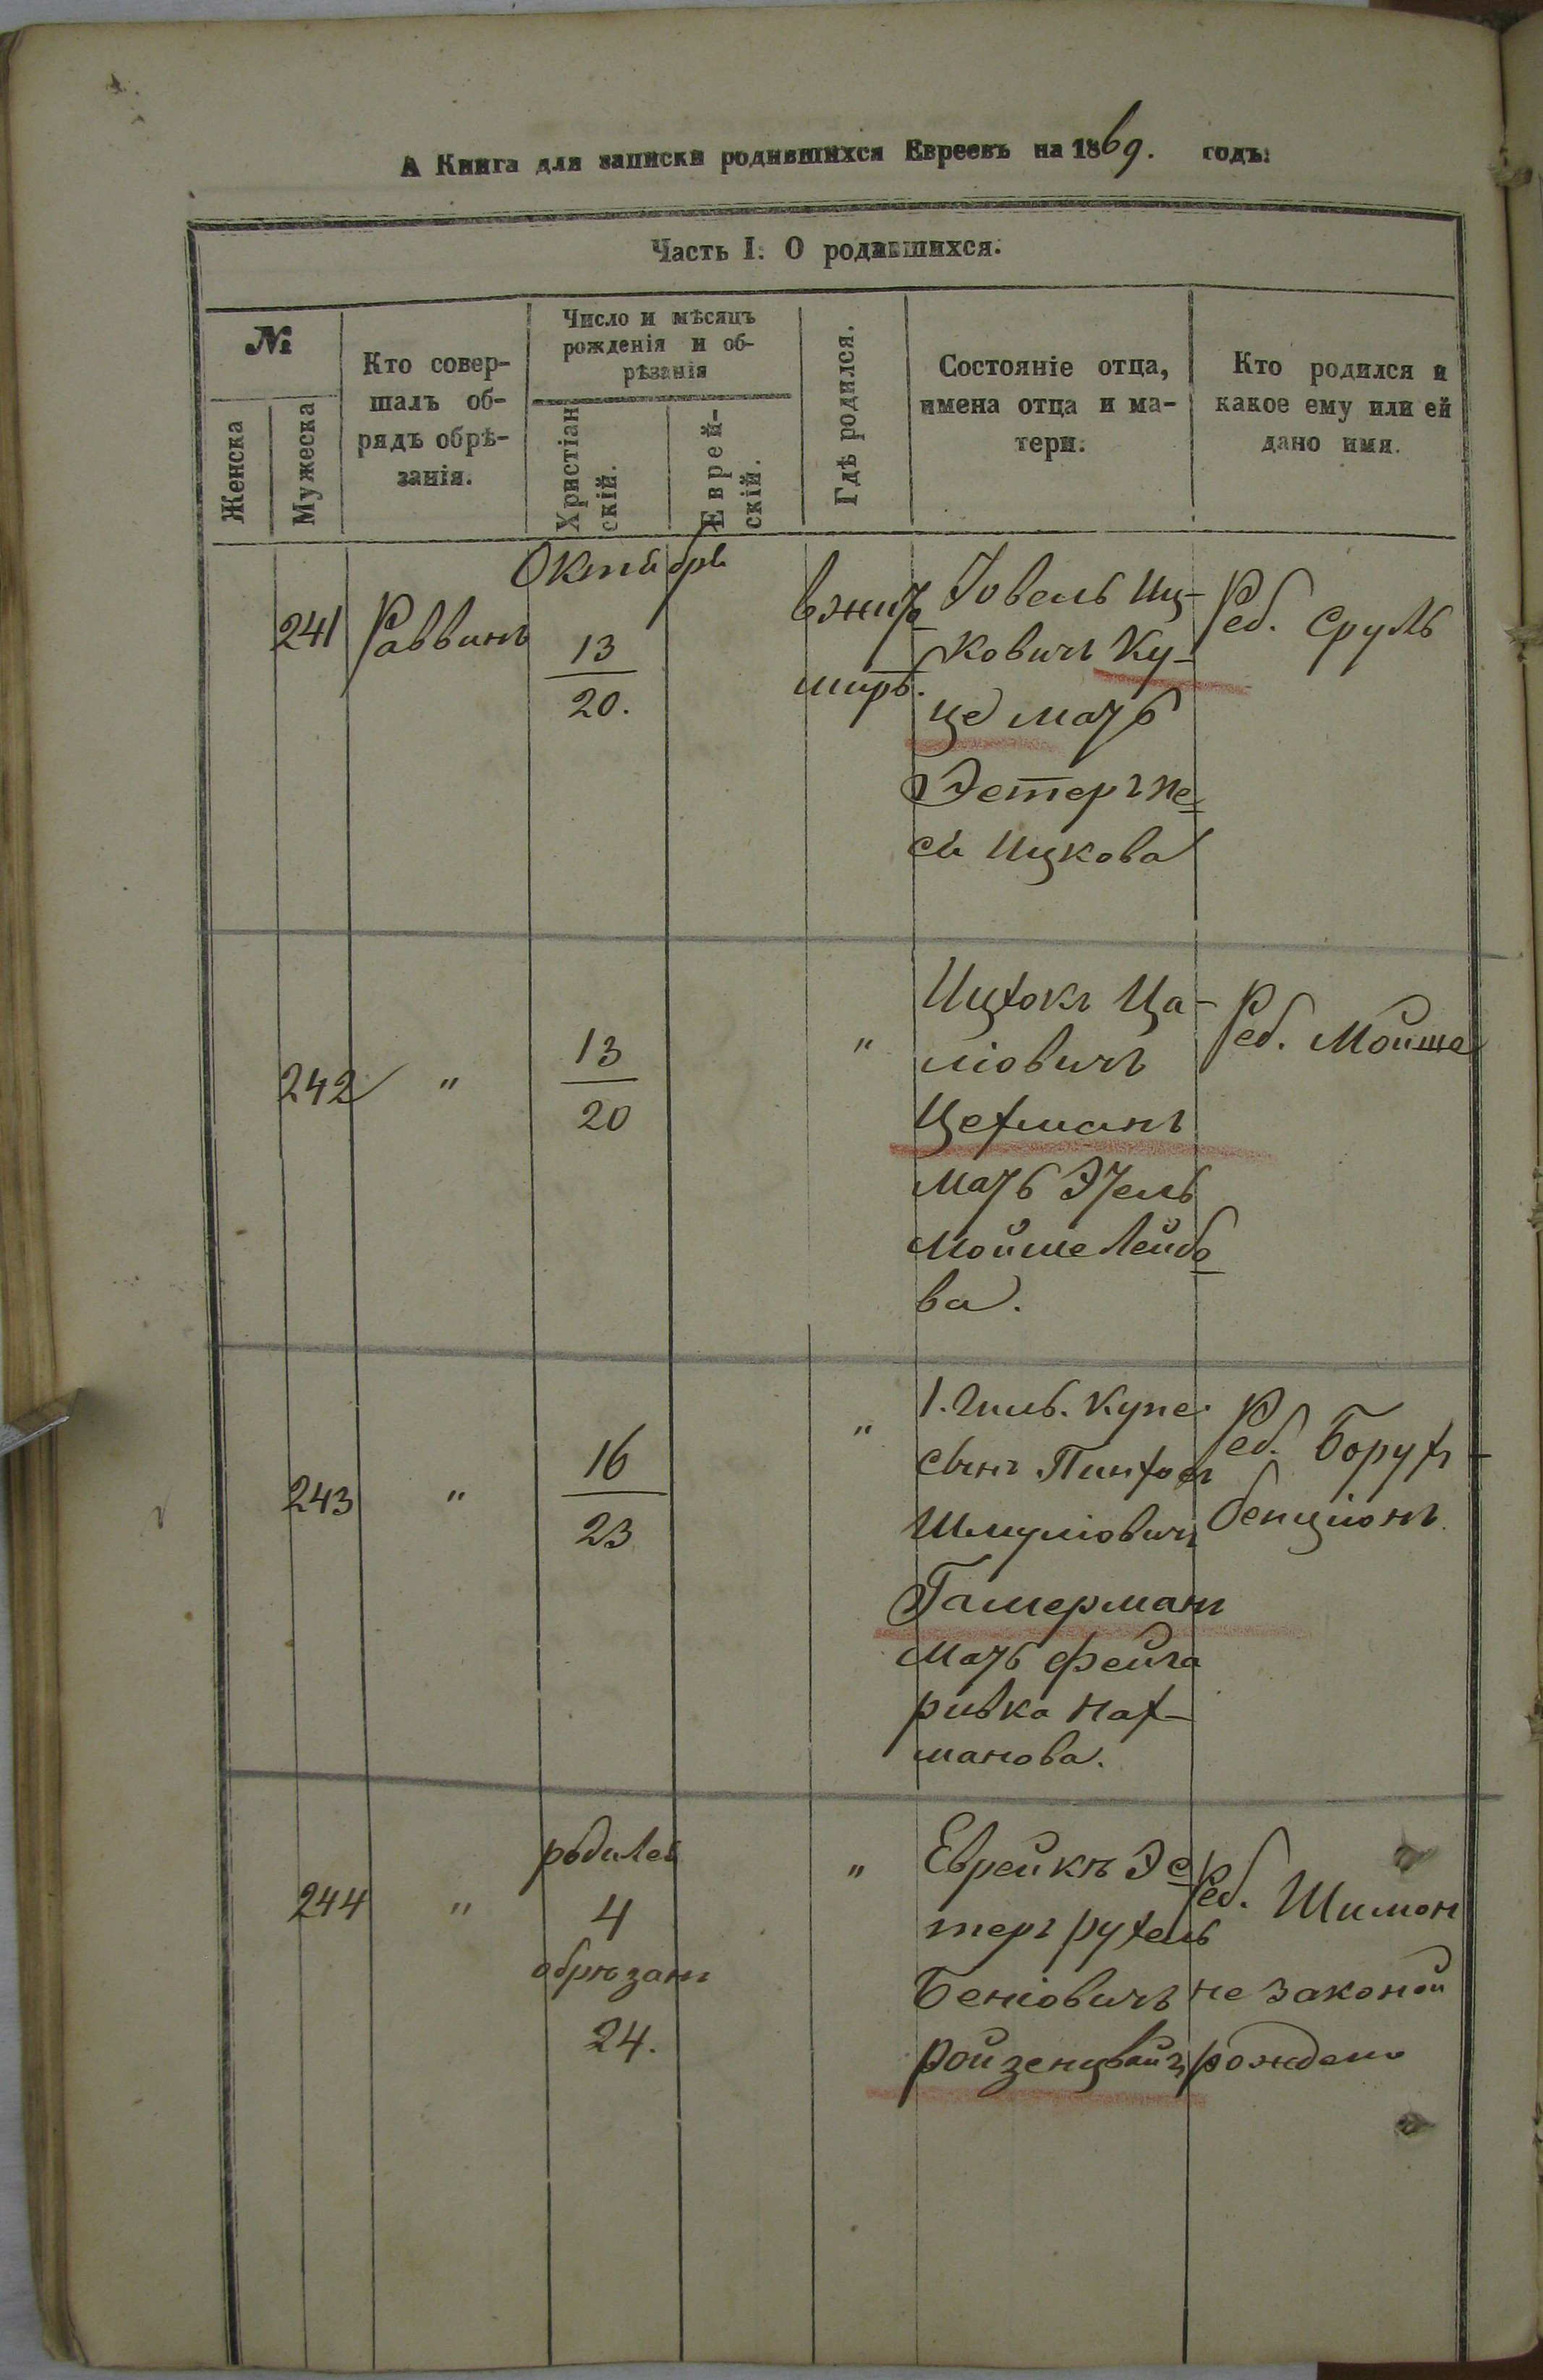 А Книга для записки родившихся Евреевъ на 1869. годъ:
Часть I. О родившихся.
№
Женска
Мужеска
Кто совер-
шалъ об-
рядъ обрѣ-
занія.
Число и мѣсяцъ
рожденія и об-
рѣзанія
Христіан
скій.
Еврей-
скій.
Гдѣ родился.
Состояніе отца,
имена отца и ма-
тери.
Кто родился и
какое ему или ей
дано имя.
Октября
241
Раввинъ
13
20.
вжито
миръ.
Іовель Иц-
ковичъ Ку-
це мать
Эстеръ пе-
ся Ицкова
Реб. Сруль
242
"
13
20
"
Ицхокъ Ца-
ліовичъ
Цехманъ
мать Этель
Мойше Лейбо
ва.
Реб. Мойше
243
"
16
23
"
1. гиль. купе.
сынъ Пинхосъ
Шмуліовичъ
Гамерманъ
мать Фейга
ривка Нах-
манова.
Реб. Борухъ-
бенціонъ
244
"
родился
4
обрѣзанъ
24.
"
Еврейкѣ Эс-
теръ рухель
Беніовичъ
Ройзенцвайгъ
Реб. Шимон
не законой
рождено